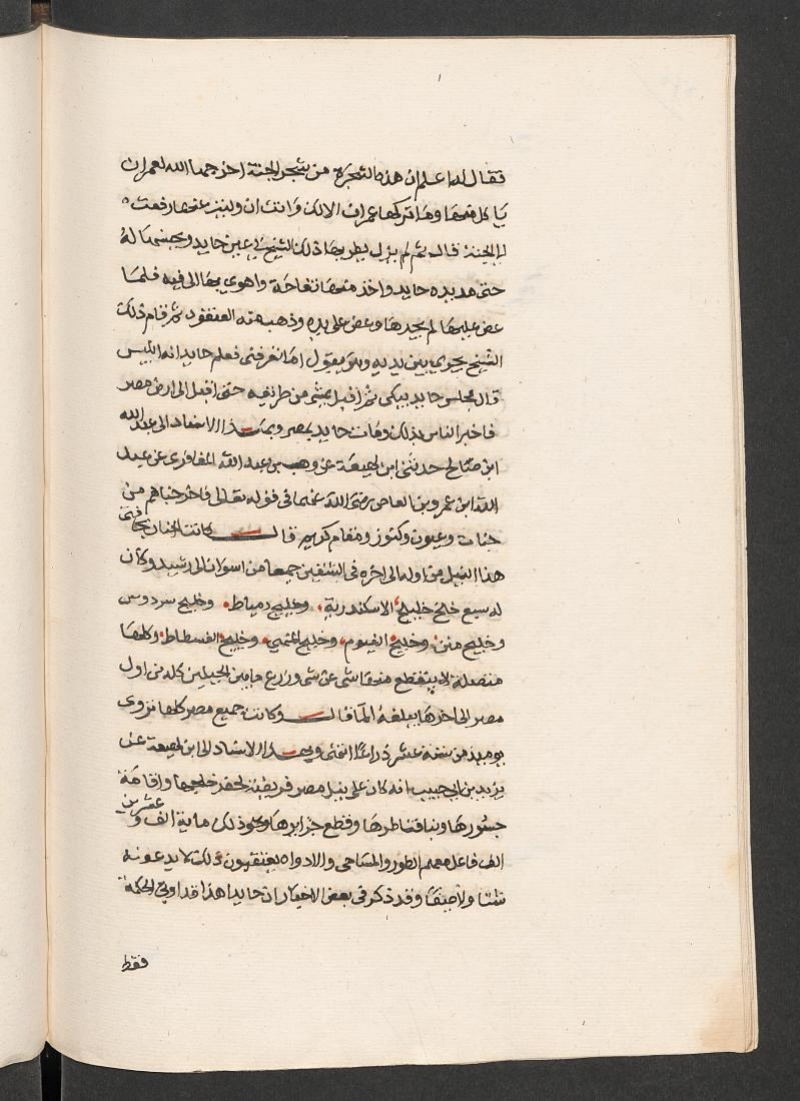 فقال له اعلم ان هذه الشجرة من شجر الجنة اخرجها الله لعمران
ياكل منها وما تركها عمران الا لك وانت ان وليت عنها رفعت
الى الجنة قال ثم لم يزل يطريها ذلك الشيخ في عين حايد ويحسنها له
حتى مد يده حايد واخذ منها تفاحة واهوى بها الى فيه فلما
عض عليها لم يجدها وعض على يده وذهب منه العنقود ثم قام ذلك
الشيخ يجري بين يديه وهو يقول اما تعرفني فعلم حايد انه ابليس
قال فجلس حايد يبكي ثم اقبل يمشي من طريقه حتى اقبل الى ارض مصر
فاخبر الناس بذلك ومات حايد بمصر وبهذا الاسناد الى عبد الله
ابن صالح حدثني ابن لهيعة عن وهب بن عبد الله المغافري عن عبد
الله ابن عمرو بن العاص رضى الله عنهما في قوله تعالى فاخرجناهم من
جنات وعيون وكنوز ومقام كريم قال كانت الجنان بحافتي
هذا النيل من اوله الى اخره في الشقين جميعا من اسوان الى رشيد وكان
له سبع خلج خليج الاسكندرية وخليج دمياط وخليج سردوس
وخليج منف وخليج الفيوم وخليج المنهي وخليج الفسطاط وكلها
متصلة لا ينقطع منها شي عن شي وزرع ما بين الجبلين كله من اول
مصر الى اخرها يبلغه الما قال وكانت جميع مصر كلها تروى
يوميذ من ستة عشر ذراعا انتهى وبهذا الاسناد الى ابن لهيعة عن
يزيد بن ابي حبيب انه كان على نيل مصر فريضة لحفر خلجها واقامة
جسورها وبنا قناطرها وقطع جزايرها ونحو ذلك ماية الف وعشرين
الف فاعل معهم الطور والمساحي والادواه يعتقبون ذلك لا يدعونه
شتا ولا صيفا وقد ذكر في بعض الاخبار ان حايدا هذا قد اوتي الحكمة
فقط